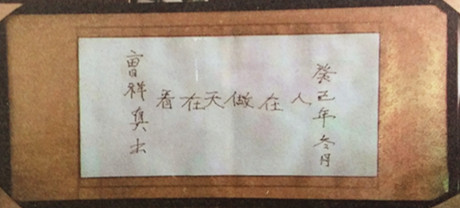 癸巳年冬月
人在做天在看
曹祥